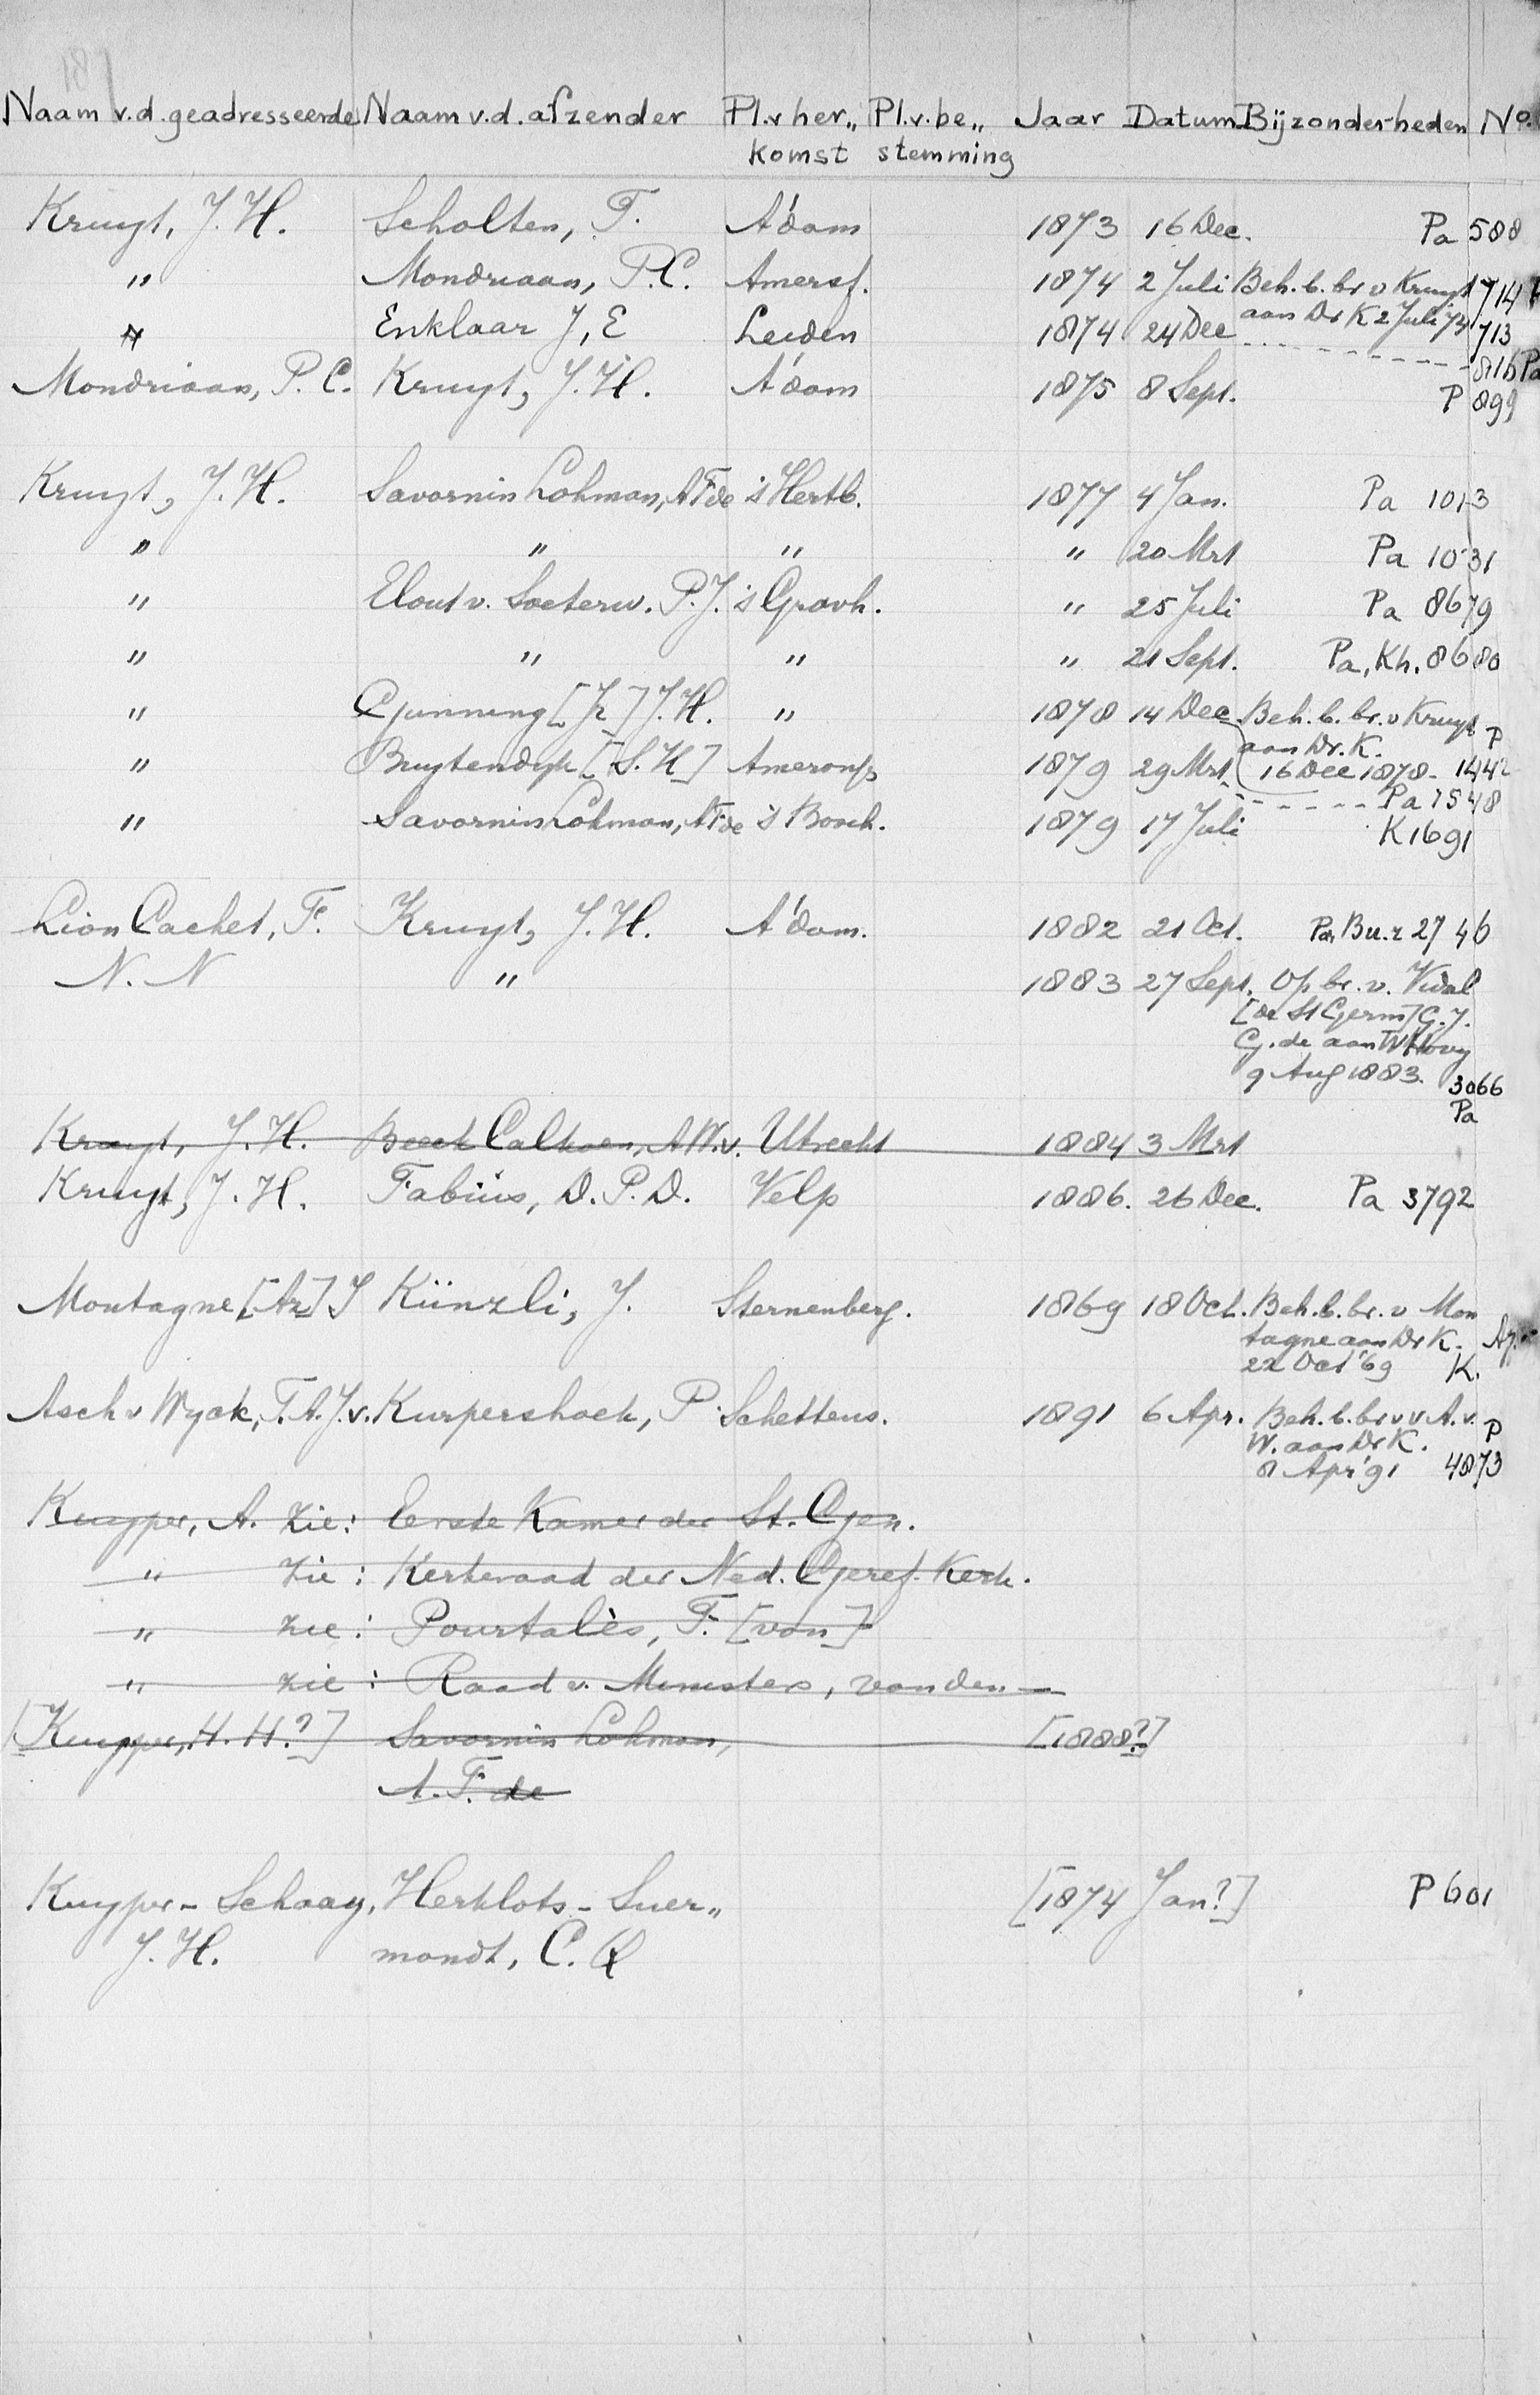 Naam v.d. geadresseerde Naam v.d. afzender Pl. v her„ Pl. v. be„ Jaar Datum Bijzonderheden No.
komst stemming
Kruyt, J. H. Scholten, T. A'dam 1873 16 Dec. Pa 588
" Mondriaan, P.C. Amersf. 1874 2 Juli Beh. b. br v Kruyt 714 P
aan Dr K 2 Juli 74
" Enklaar J, E Leiden 1874 24 Dec 713
816 Pa
Mondriaan, P. C. Kruyt, J. H. A'dam 1875 8 Sept. P 899
Kruyt, J. H. Savornin Lohman, AF de 's Hertb. 1877 4 Jan. Pa 1013
" " " " 20 Mrt Pa 1031
" Elout v. Soeterw. P.J. 's Gravh. " 25 Juli Pa 8679
" " " " 21 Sept. Pa, Kh. 8680
" Gunning [Jr] J. H. " 1878 14 Dec Beh. b. br. v Kruyt P
aan Dr. K.
" Buytendyk [S. H] Amerong 1879 29 Mrt 16 Dec 1878 - 1442
Pa 1548
" Savornin Lohman, AF de 's Bosch. 1879 17 Juli K 1691
Lion Cachet, F. Kruyt, J. H. A'dam. 1882 21 Oct. Pa, Bu. 2 2746
N. N " 1883 27 Sept. Op br. v. Vidal
[de St Germ] G. J.
G. de aan W Hovy
9 Aug 1883. 3066
Pa
Kruyt, J. H. Beeck Calkoen, A W. v. Utrecht 1884 3 Mrt
Kruyt, J. H. Fabius, D. P. D. Velp 1886. 26 Dec. Pa 3792
Montagne [Az] J Künzli, J. Sternenberg. 1869 18 Oct. Beh. b. br. v Mon
tagne aan Dr K.
22 Oct '69 K.
Asch v Wyck, T. A. J. v. Kurpershoek, P Schettens. 1891 6 Apr. Beh. b. br v v A. v. P
W. aan Dr K.
8 Apr '91 4873
Kuyper, A. zie: Eerste Kamer der St. Gen.
" zie: Kerkeraad der Ned. Geref. Kerk.
" zie: Pourtalès, F. [von]
" zie: Raad v. Ministers, van den —
[Kuyper, H. H.?] Savornin Lohman, [1888?]
A. F. de
Kuyper - Schaay, Herklots - Suer„ [1874 Jan?] P 601
J. H. mondt, C. Q